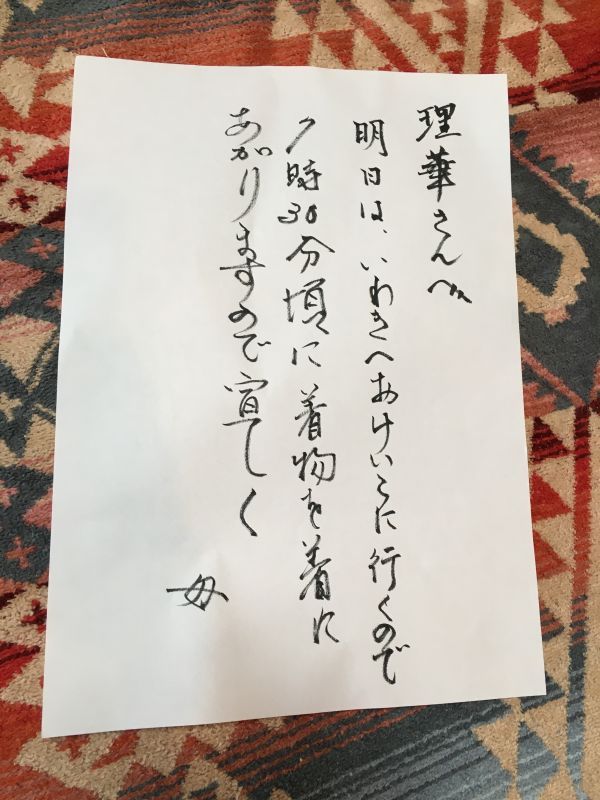 理華さんへ
明日は、いわきへおけいこに行くので
7時30分頃に着物を着に
あがりますので宜しく
母